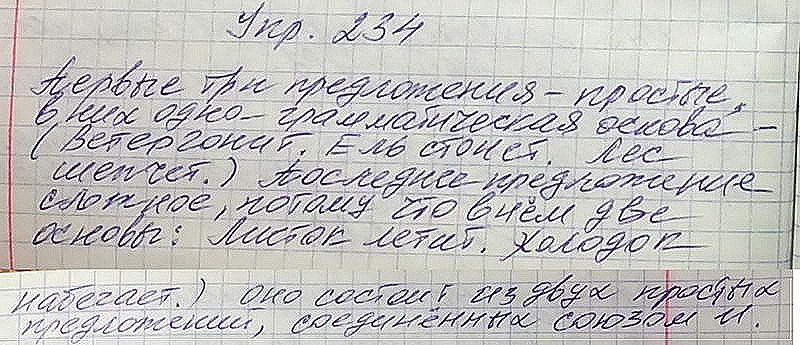 Упр. 234
Первые три предложения – простые,
в них одно – грамматическая основа –
(Ветер гонит. Ель стонет. Лес
шепчет.) Последнее предложение
сложное, потому что в нём две
основы: Листок летит. Холодок
набегает.) Оно состоит из двух простых
предложений, соединённых союзом и.